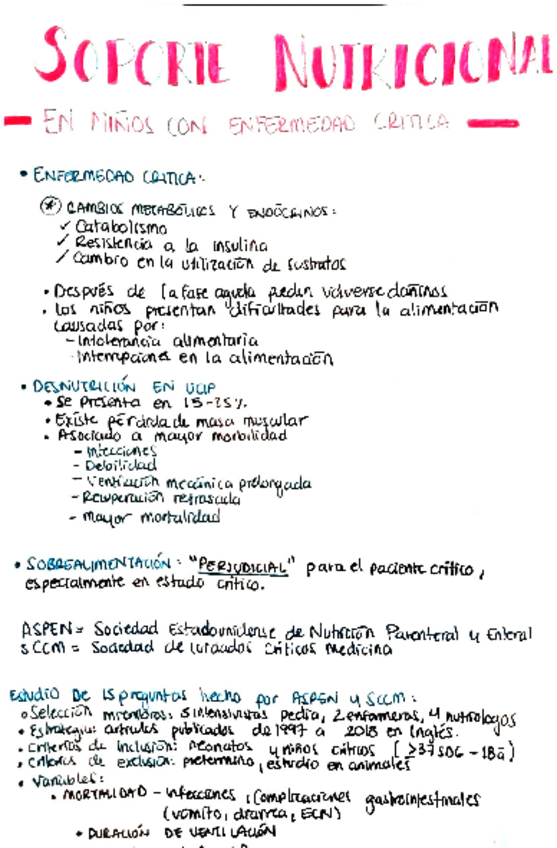 SOPORTE NUTRICIONAL
EN NIÑOS CON ENFERMEDAD CRITICA
• ENFERMEDAD CRITICA:
* CAMBIOS METABÓLICOS Y ENDOCRINOS:
✓ Catabolismo
✓ Resistencia a la insulina
✓ Cambio en la utilización de sustratos
• Después de la fase aguda pueden volverse dañinos
• Los niños presentan dificultades para la alimentación
causadas por:
- Intolerancia alimentaria
- Interrupciones en la alimentación
• DESNUTRICIÓN EN UCIP
• Se presenta en 15-25%.
• Existe pérdida de masa muscular
• Asociado a mayor morbilidad
- Infecciones
- Debilidad
- Ventilación mecánica prolongada
- Recuperación retrasada
- Mayor mortalidad
• SOBREALIMENTACIÓN: "PERJUDICIAL" para el paciente crítico,
especialmente en estado crítico.
ASPEN = Sociedad Estadounidense de Nutrición Parenteral y Enteral
SCCM = Sociedad de cuidados críticos medicina
Estudio De 15 preguntas hecho por ASPEN y SCCM:
• Selección miembros: 5 intensivistas pedia, 2 enfermeros, 4 nutrologos
• Estrategia: artículos publicados de 1997 a 2018 en Inglés.
• Criterios de inclusión: neonatos y niños críticos (≥37 SDG - 18a)
• Criterios de exclusión: pretermino, estudio en animales
• Variables:
• MORTALIDAD - infecciones, complicaciones gastrointestinales
(vomito, diarrea, ECN)
• DURACIÓN DE VENTILACIÓN